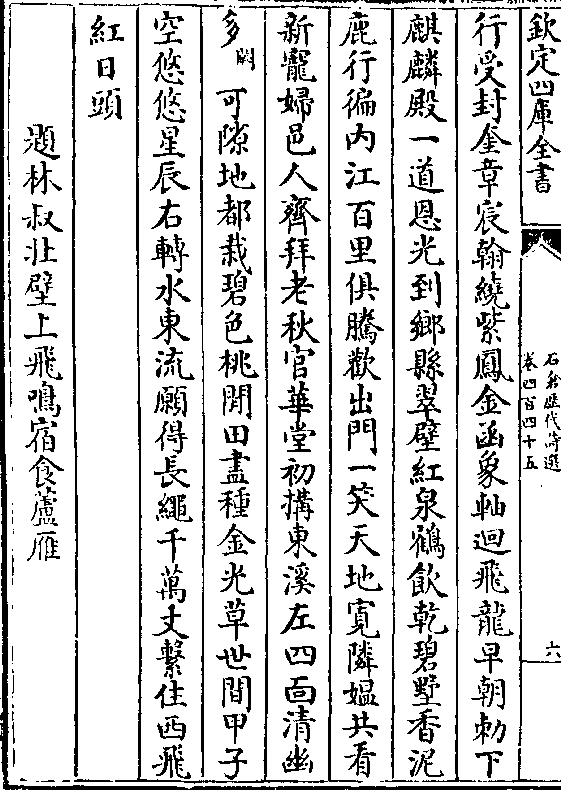 欽定四庫全書
石倉歷代詩選
卷四百四十五
六
行受封金章宸翰繞紫鳳金函象軸迴飛龍早朝勅下
麒麟殿一道恩光到鄉縣翠壁紅泉鶴飲乾碧墅香泥
鹿行徧内江百里俱騰歡出門一笑天地寛隣媼共看
新寵婦邑人齊拜老秋官華堂初搆東溪左四面清幽
多闕可隙地都栽碧色桃閒田盡種金光草世間甲子
空悠悠星辰右轉水東流願得長繩千萬丈繫住西飛
紅日頭
題林叔壯壁上飛鳴宿食蘆雁